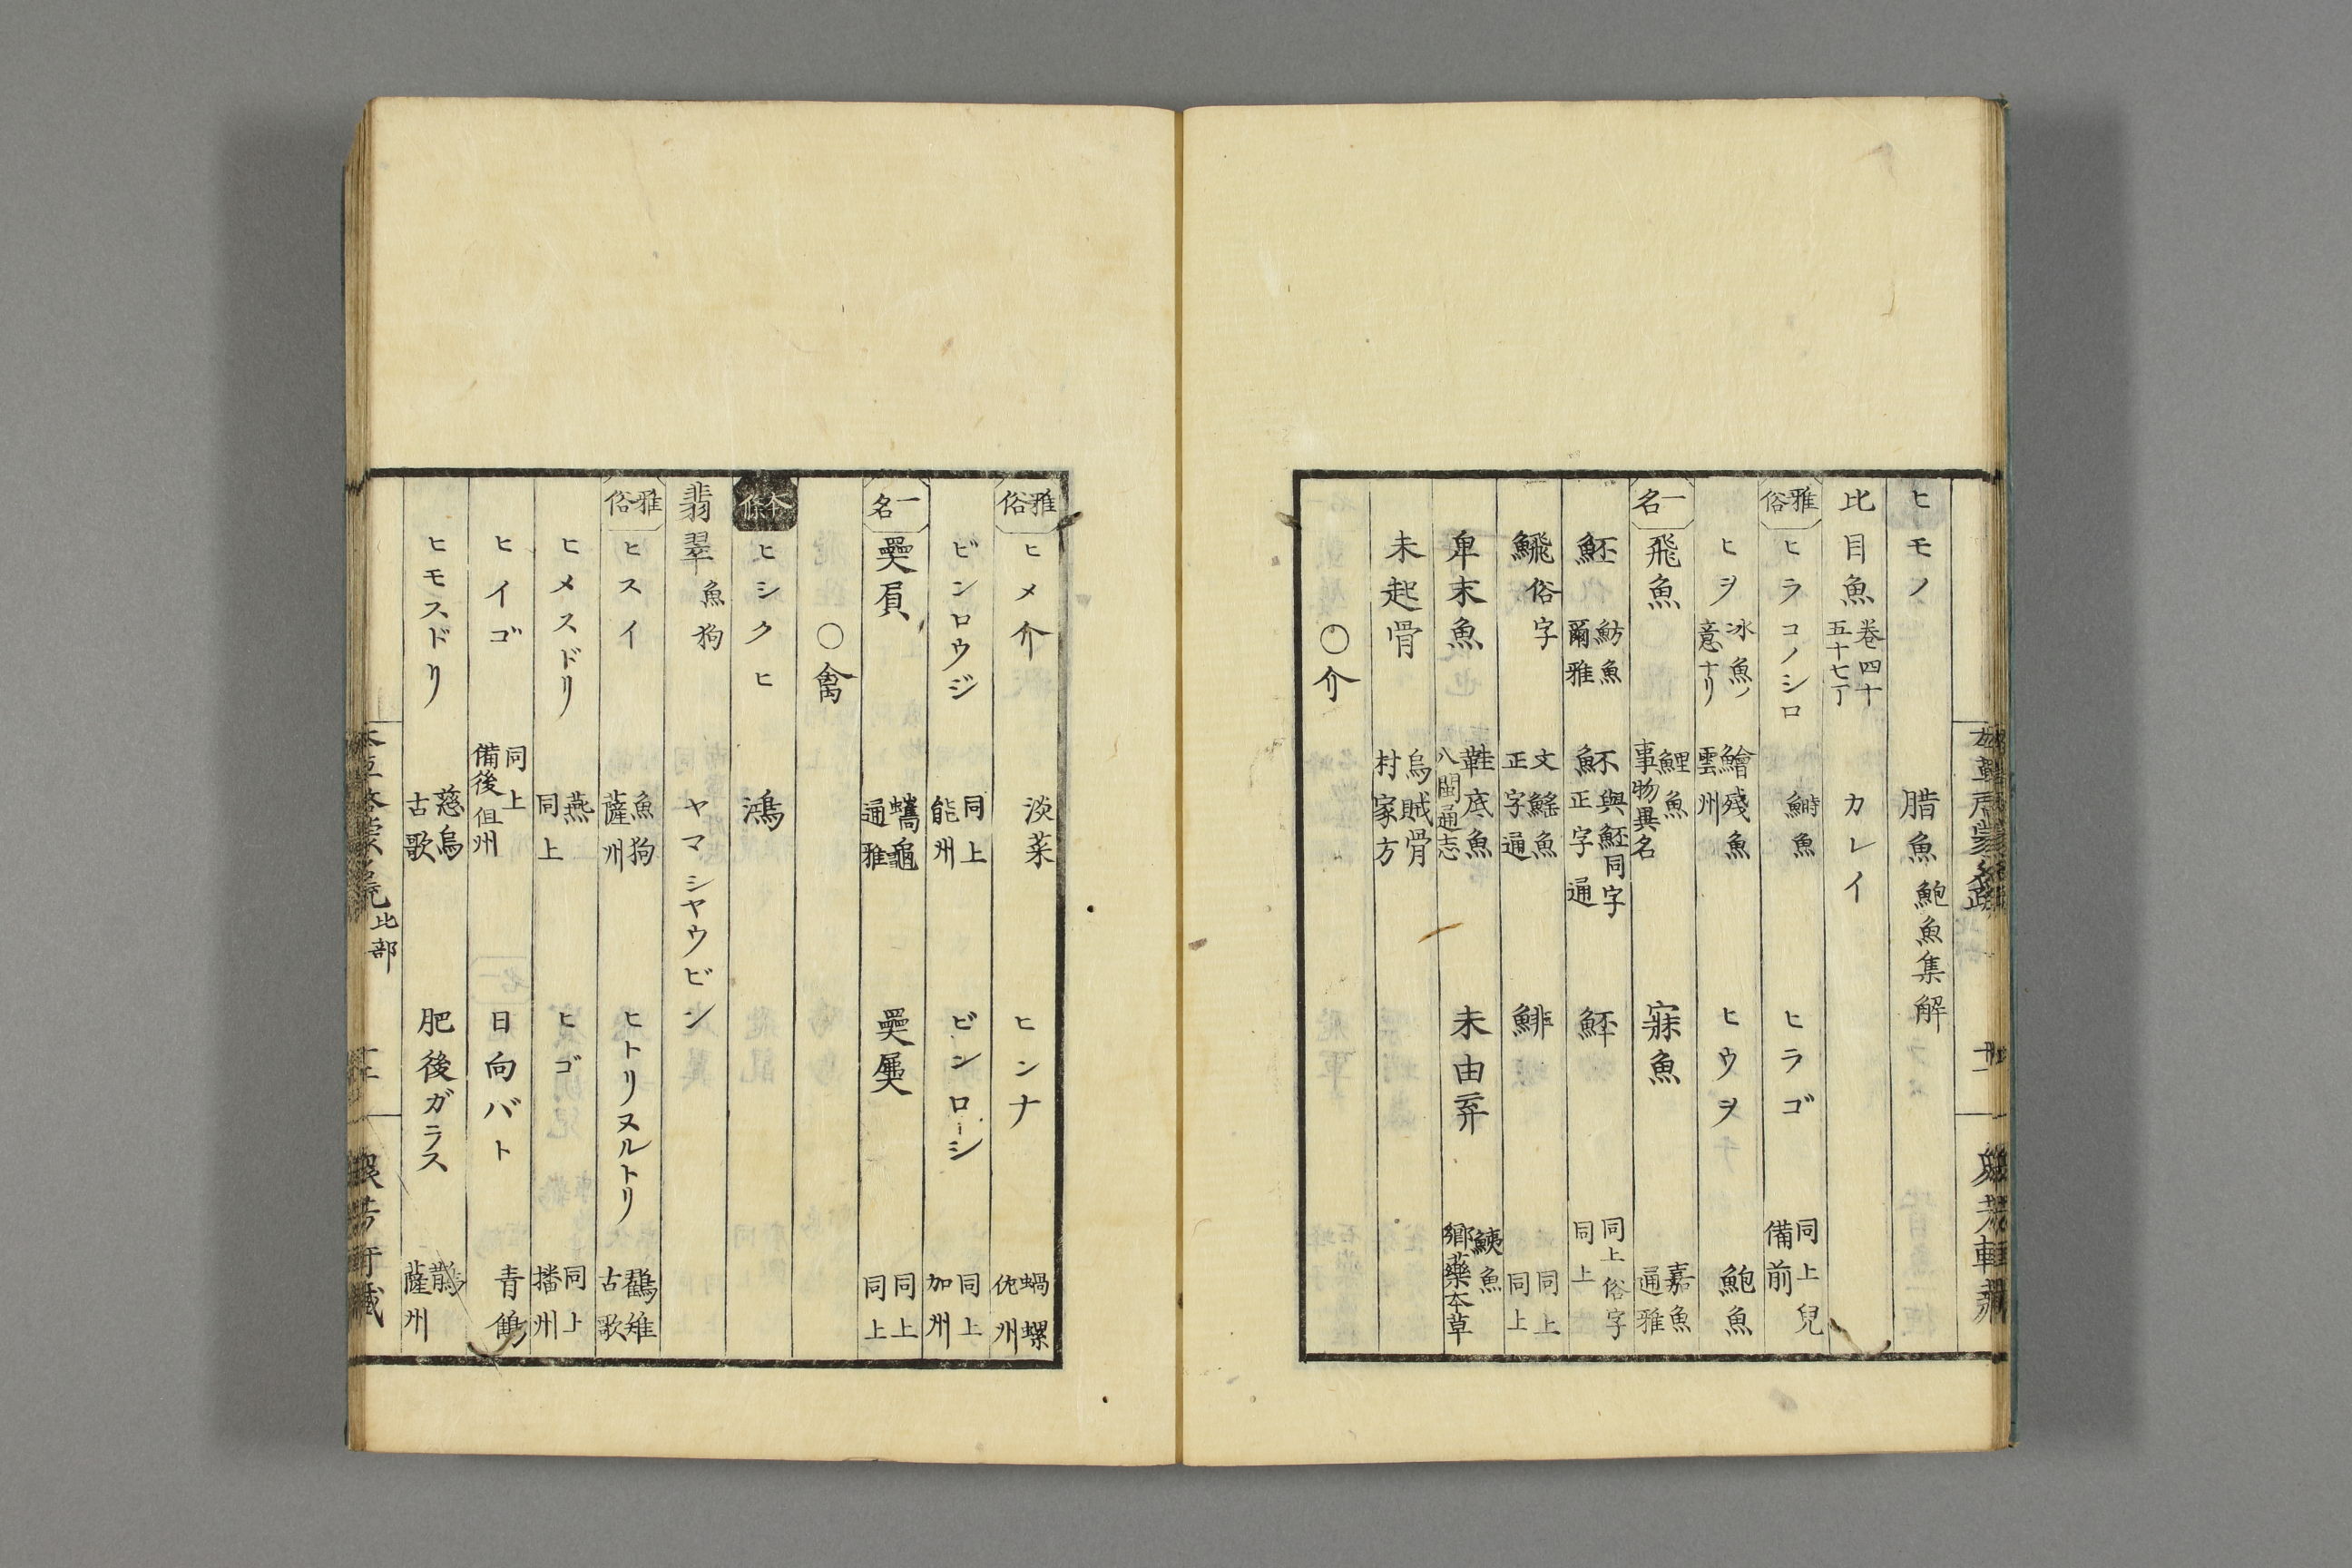 ヒモノ 腊魚 鮑魚集解
比目魚 卷四十五十七丁 カレイ
雅俗 ヒラコノシロ 鰣魚 ヒラゴ 同上兒備前
ヒヲ 冰魚ノ意ナリ 鱠殘魚雲州 ヒウヲ 鮑魚
一名 飛魚 鯉魚事物異名 寐魚 嘉魚通雅
魾 魴魚爾雅 𩶁與魾同字正字通 鮃 同上俗字同上
𩙲俗字 文鰩魚正字通 鯡 同上同上
𤰞末魚 鞋底魚八閩通志 未由棄 鮧魚鄕藥本草
未起骨 烏賊骨村家方
〇介
雅俗 ヒメ介 淡菜 ヒンナ 蝸螺佐州
ビンロウジ 同上能州 ビンローシ 同上加州
一名 㚃屓 蠵龜通雅 㚃屭 同上同上
〇禽
本條 ヒシクヒ 鴻
翡翠 魚狗 ヤマシヤウビン
雅俗 ヒスイ 魚狗薩州 ヒトリヌルトリ 鸐雉古歌
ヒメスドリ 燕同上 ヒゴ 同上播州
ヒイゴ 同上備後但州 日向バト 青鶴
ヒモスドリ 慈烏古歌 肥後ガラス 鵲薩州
本草啓蒙名疏 比部 十二 衆芳軒藏